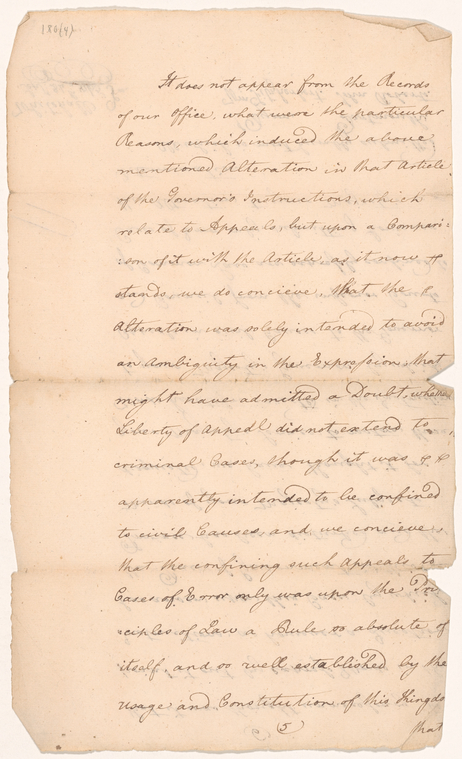 It does not appear from the Records
of our Office, what were the particular
Reasons, which induced the above
mentioned Alteration in that Article
of the Governor's Instructions, which
relate to Appeals, but upon a Compari:
:son of it with the Article, as it now
stands, we do concieve, that the
Alteration was solely intended to avoid
an Ambiguity in the Expression, that
might have admitted a Doubt, whether
Liberty of Appeal did not extend to
criminal Cases, though it was
apparently intended to be confined
to civil Causes, and we concieve,
that the confining such Appeals to
Cases of Error only was upon the Prin
:ciples of Law a Rule so absolute of
itself, and so well established by the
usage and Constitution of this Kingdo
(5)
that